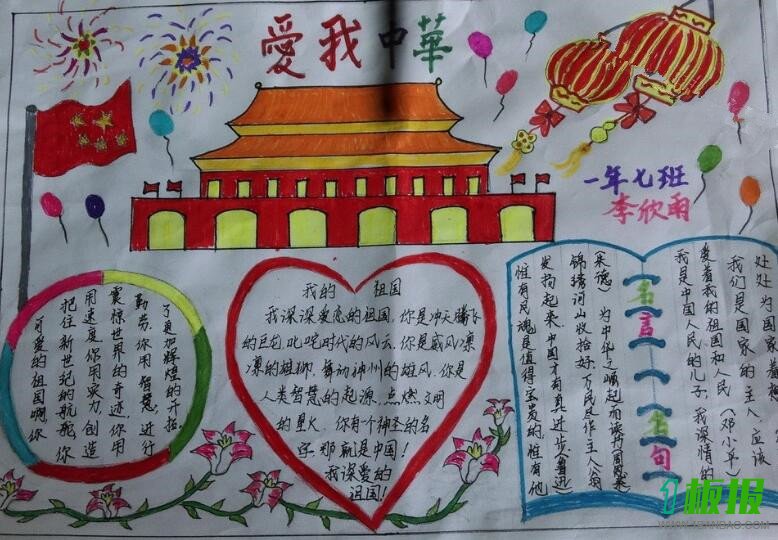 愛我中華
一年七班
李欣雨
我的 祖国
我深深爱恋的祖国,你是冲天腾飞
的巨龙,叱咤时代的风云,你是威风凛
凛的雄狮,舞动神州的雄风,你是
人类智慧的起源,点燃文明
的星火,你有个神圣的名
字,那就是中国!
我深爱的
祖国!
了更加辉煌的开拓
勤劳,你用智慧,进行
震惊世界的奇迹,你用
用速度,你用实力,创造
把住新世纪的航舵,你
可爱的祖国啊,你
处处为国家着想
我们是国家的主人,应该
爱着我的祖国和人民(邓小平)
我是中国人民的儿子,我深情的
名言 名句
为中华之崛起而读书(周恩来)
锦绣河山收拾好,万民尽作主人翁
发扬起来,中国才有真进步(鲁迅)
惟有民魂是值得宝贵的,惟有他
(朱德)
1板报
WWW.1BANBAO.COM